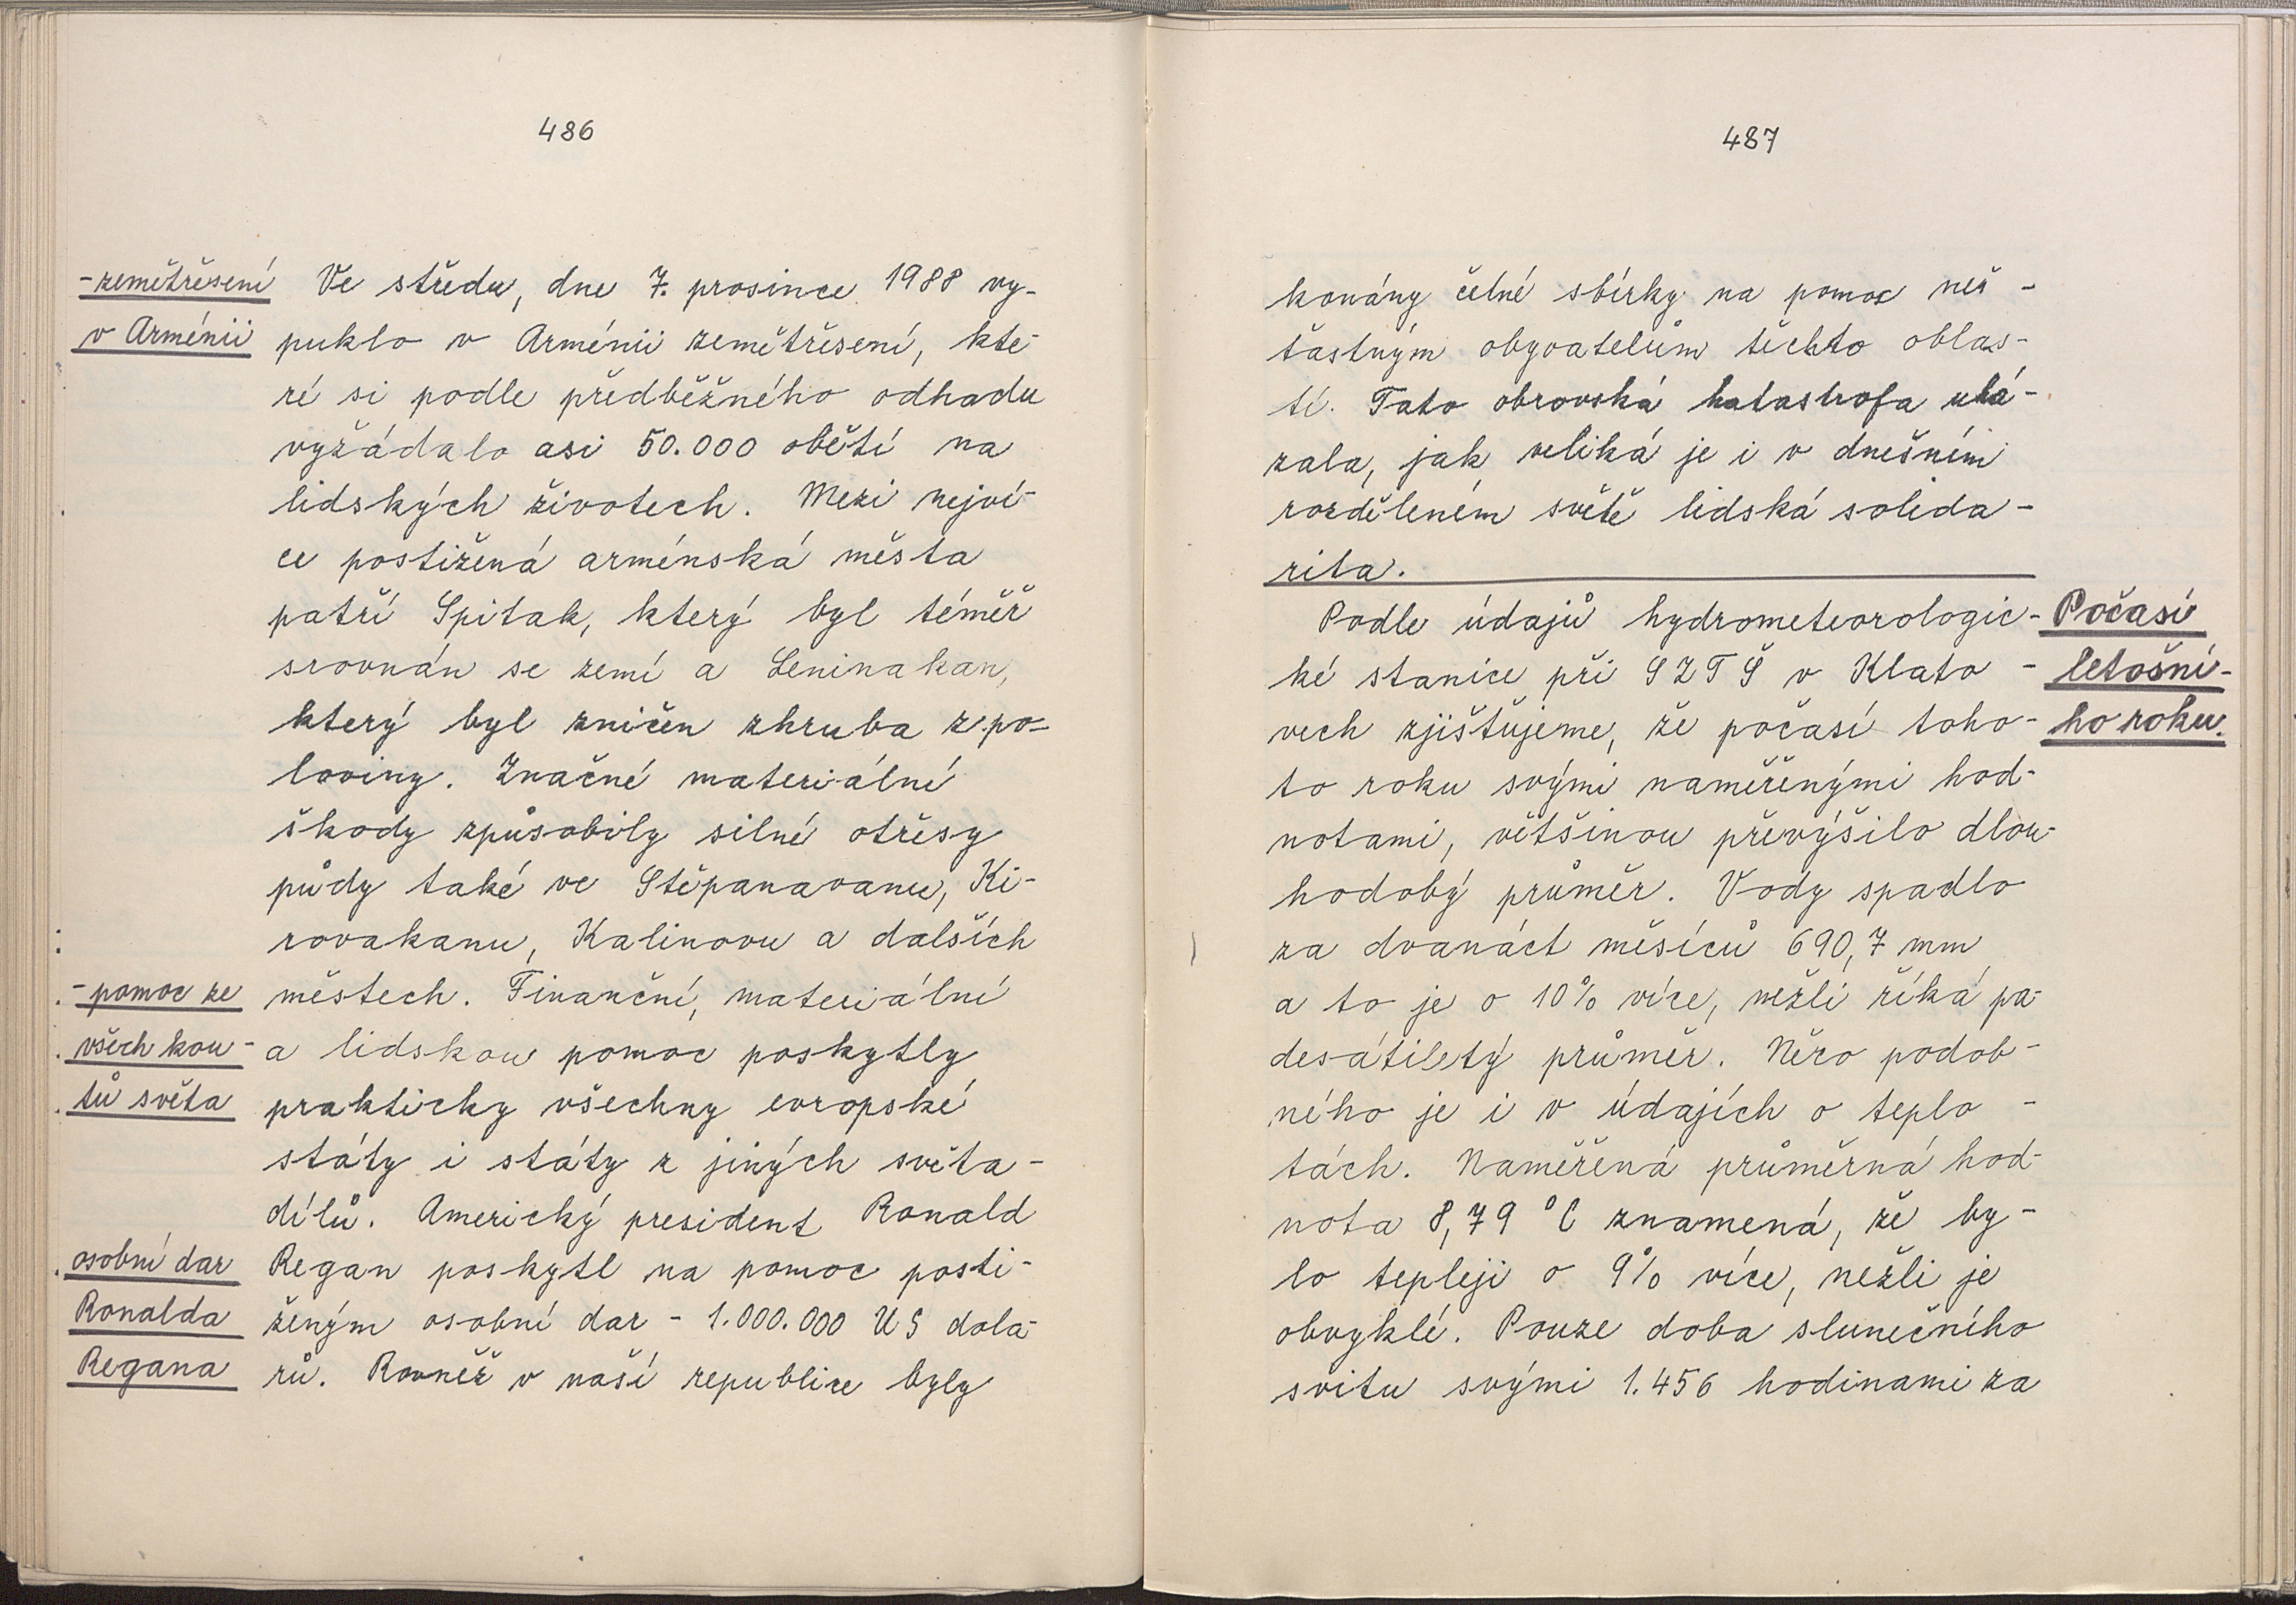 486
-zemětřesení
v Arménii
Ve středu, dne 7. prosince 1988 vy-
puklo v Arménii zemětřesení, kte-
ré si podle předběžného odhadu
vyžádalo asi 50.000 obětí na
lidských životech. Mezi nejví-
ce postižená arménská města
patří Spitak, který byl téměř
srovnán se zemí a Leninakan,
který byl zničen zhruba z po-
loviny. Značné materiální
škody způsobily silné otřesy
půdy také ve Stěpanavanu, Ki-
rovakanu, Kalinovu a dalších
městech. Finanční, materiální
a lidskou pomoc poskytly
prakticky všechny evropské
státy i státy z jiných světa-
dílů. Americký president Ronald
Regan poskytl na pomoc posti-
ženým osobní dar - 1.000.000 US dola-
rů. Rovněž v naší republice byly
-pomoc ze
všech kou-
tů světa
osobní dar
Ronalda
Regana
487
konány četné sbírky na pomoc neš-
ťastným obyvatelům těchto oblas-
tí. Tato obrovská katastrofa uká-
zala, jak veliká je i v dnešním
rozděleném světě lidská solida-
rita.
Podle údajů hydrometeorologic-
ké stanice při SZTŠ v Klato-
vech zjišťujeme, že počasí toho-
to roku svými naměřenými hod-
notami, většinou převýšilo dlou-
hodobý průměr. Vody spadlo
za dvanáct měsíců 690,7 mm
a to je o 10% více, nežli říká pa-
desátiletý průměr. Něco podob-
ného je i v údajích o teplo-
tách. Naměřená průměrná hod-
nota 8,79 °C znamená, že by-
lo tepleji o 9% více, nežli je
obvyklé. Pouze doba slunečního
svitu svými 1.456 hodinami za
Počasí
letošní-
ho roku.